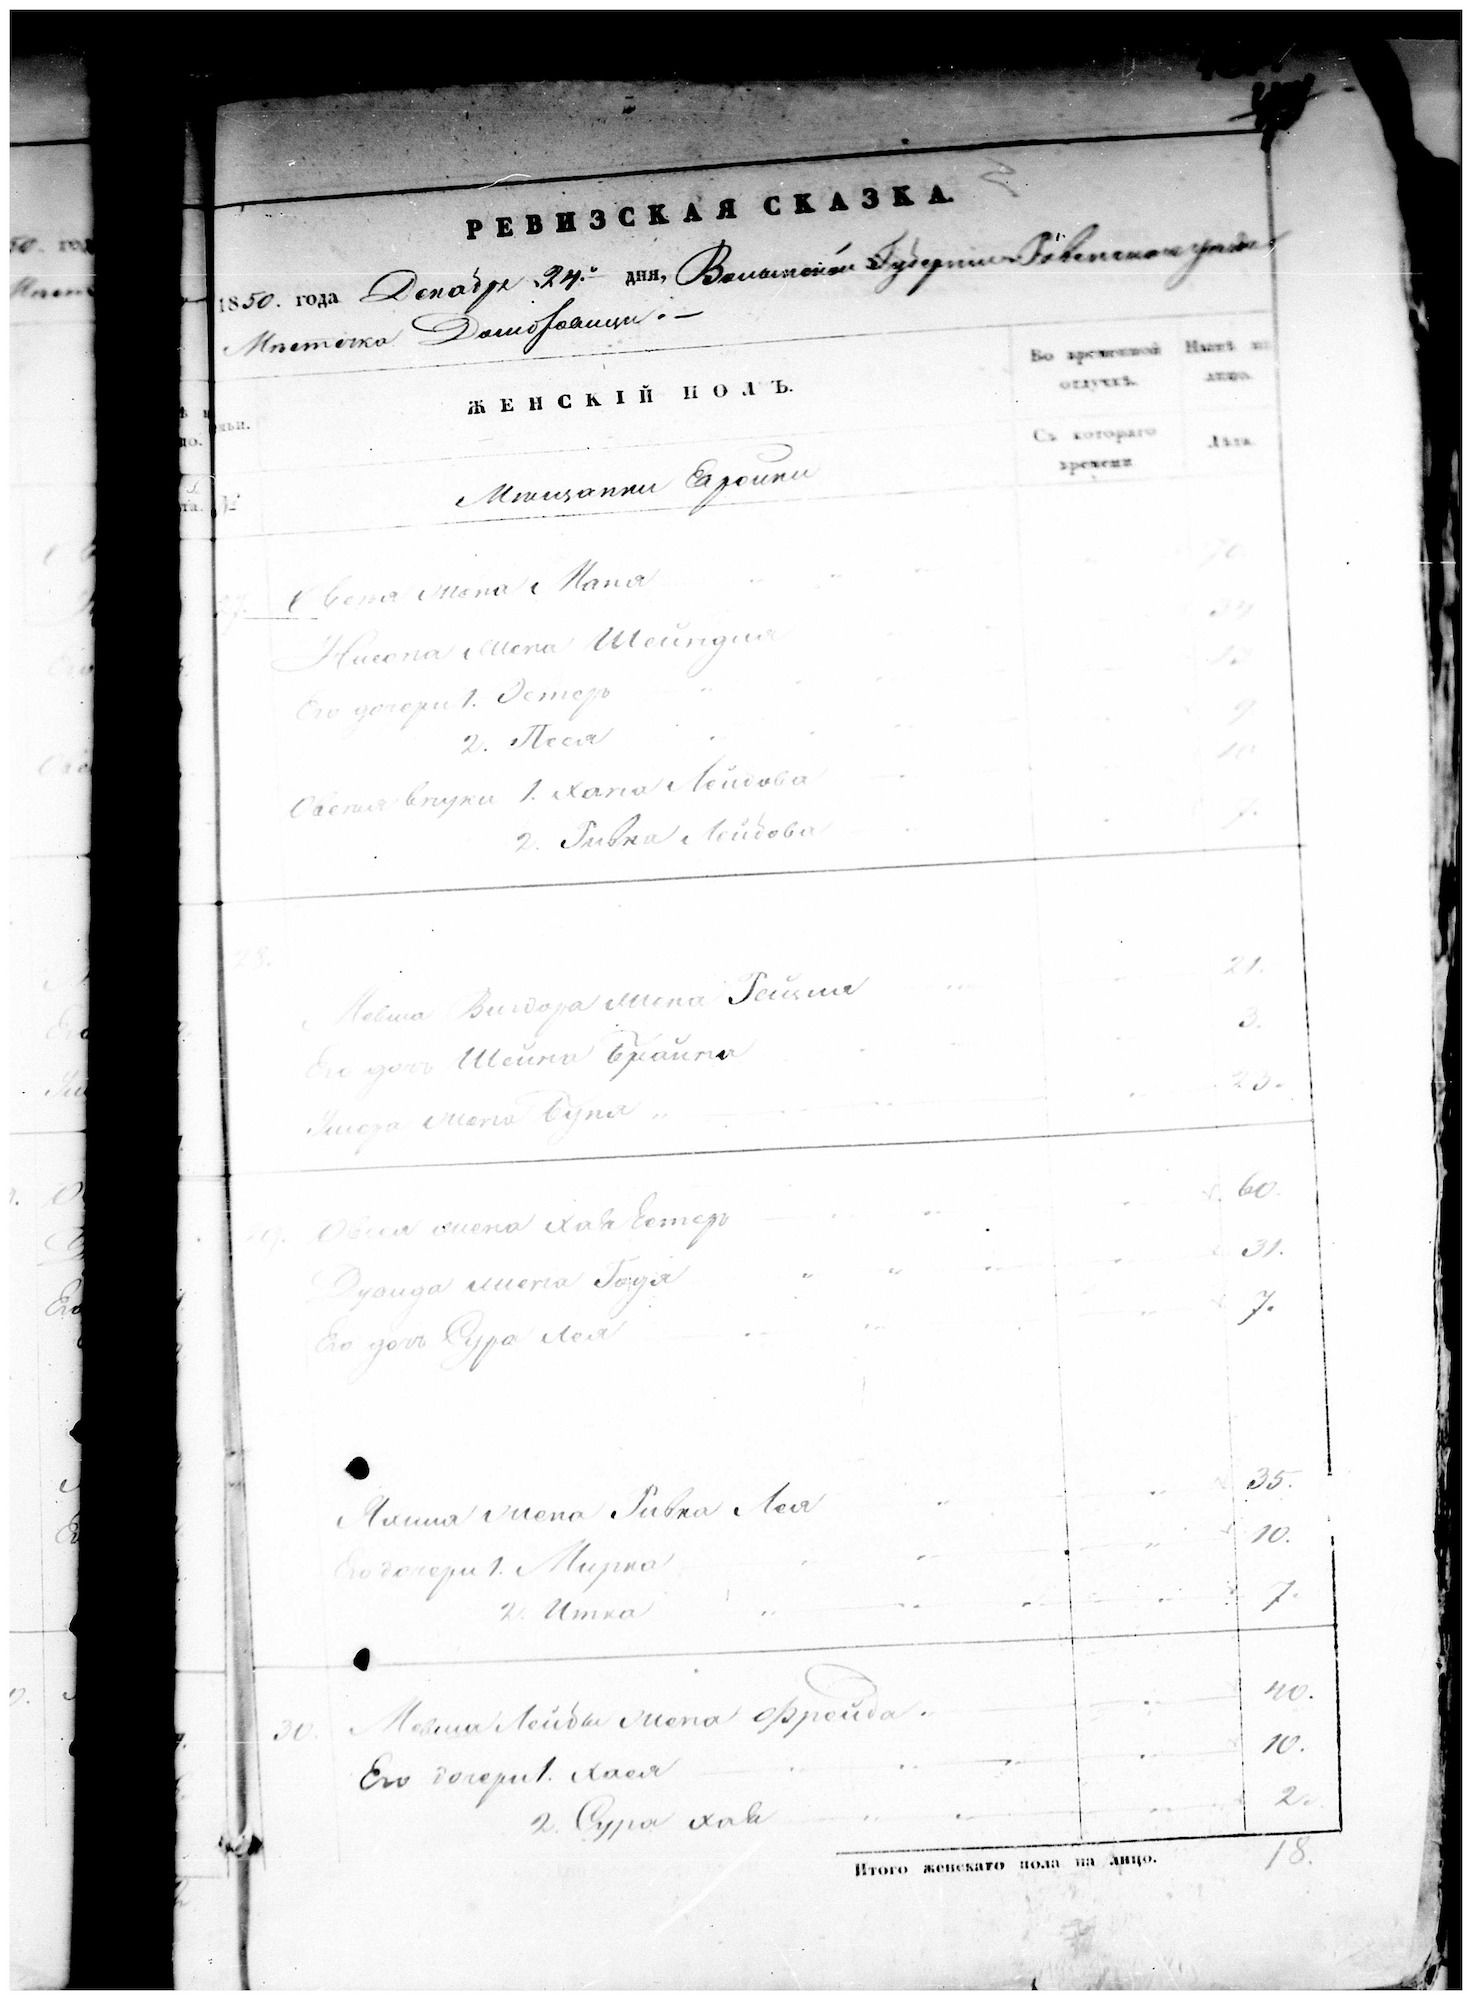 РЕВИЗСКАЯ СКАЗКА.
1850. года Декабря 24.го дня, Волынской Губернии Ровенского уезда
Местечка Домбровицы. —
ЖЕНСКІЙ ПОЛЪ.
Во временной отлучкѣ.
Нынѣ на лицо.
Съ котораго времени
Лѣта.
№
Мещанки Еврейки
27. жена Маня 70
жена Шейндля 34
Его дочери 1. Эстеръ
2. Песя 9
внуки 1. Хана Лейбова 10
2. Ривка Лейбова 7.
28.
Мовша Вигдора жена Рейзля 21.
Его дочь Шейна Брайна 3.
жена Буня 23.
29. Овсея жена Хая Естеръ 60.
Дувида жена Годя 31.
Его дочь Сура Лея 7.
жена Ривка Лея 35.
Его дочери 1. Мирка 10.
2. Итка 7.
30. Мовши Лейбы жена Фрейда 40.
Его дочери 1. Хася 10.
2. Сура Хая 2.
Итого женскаго пола на лицо. 18.